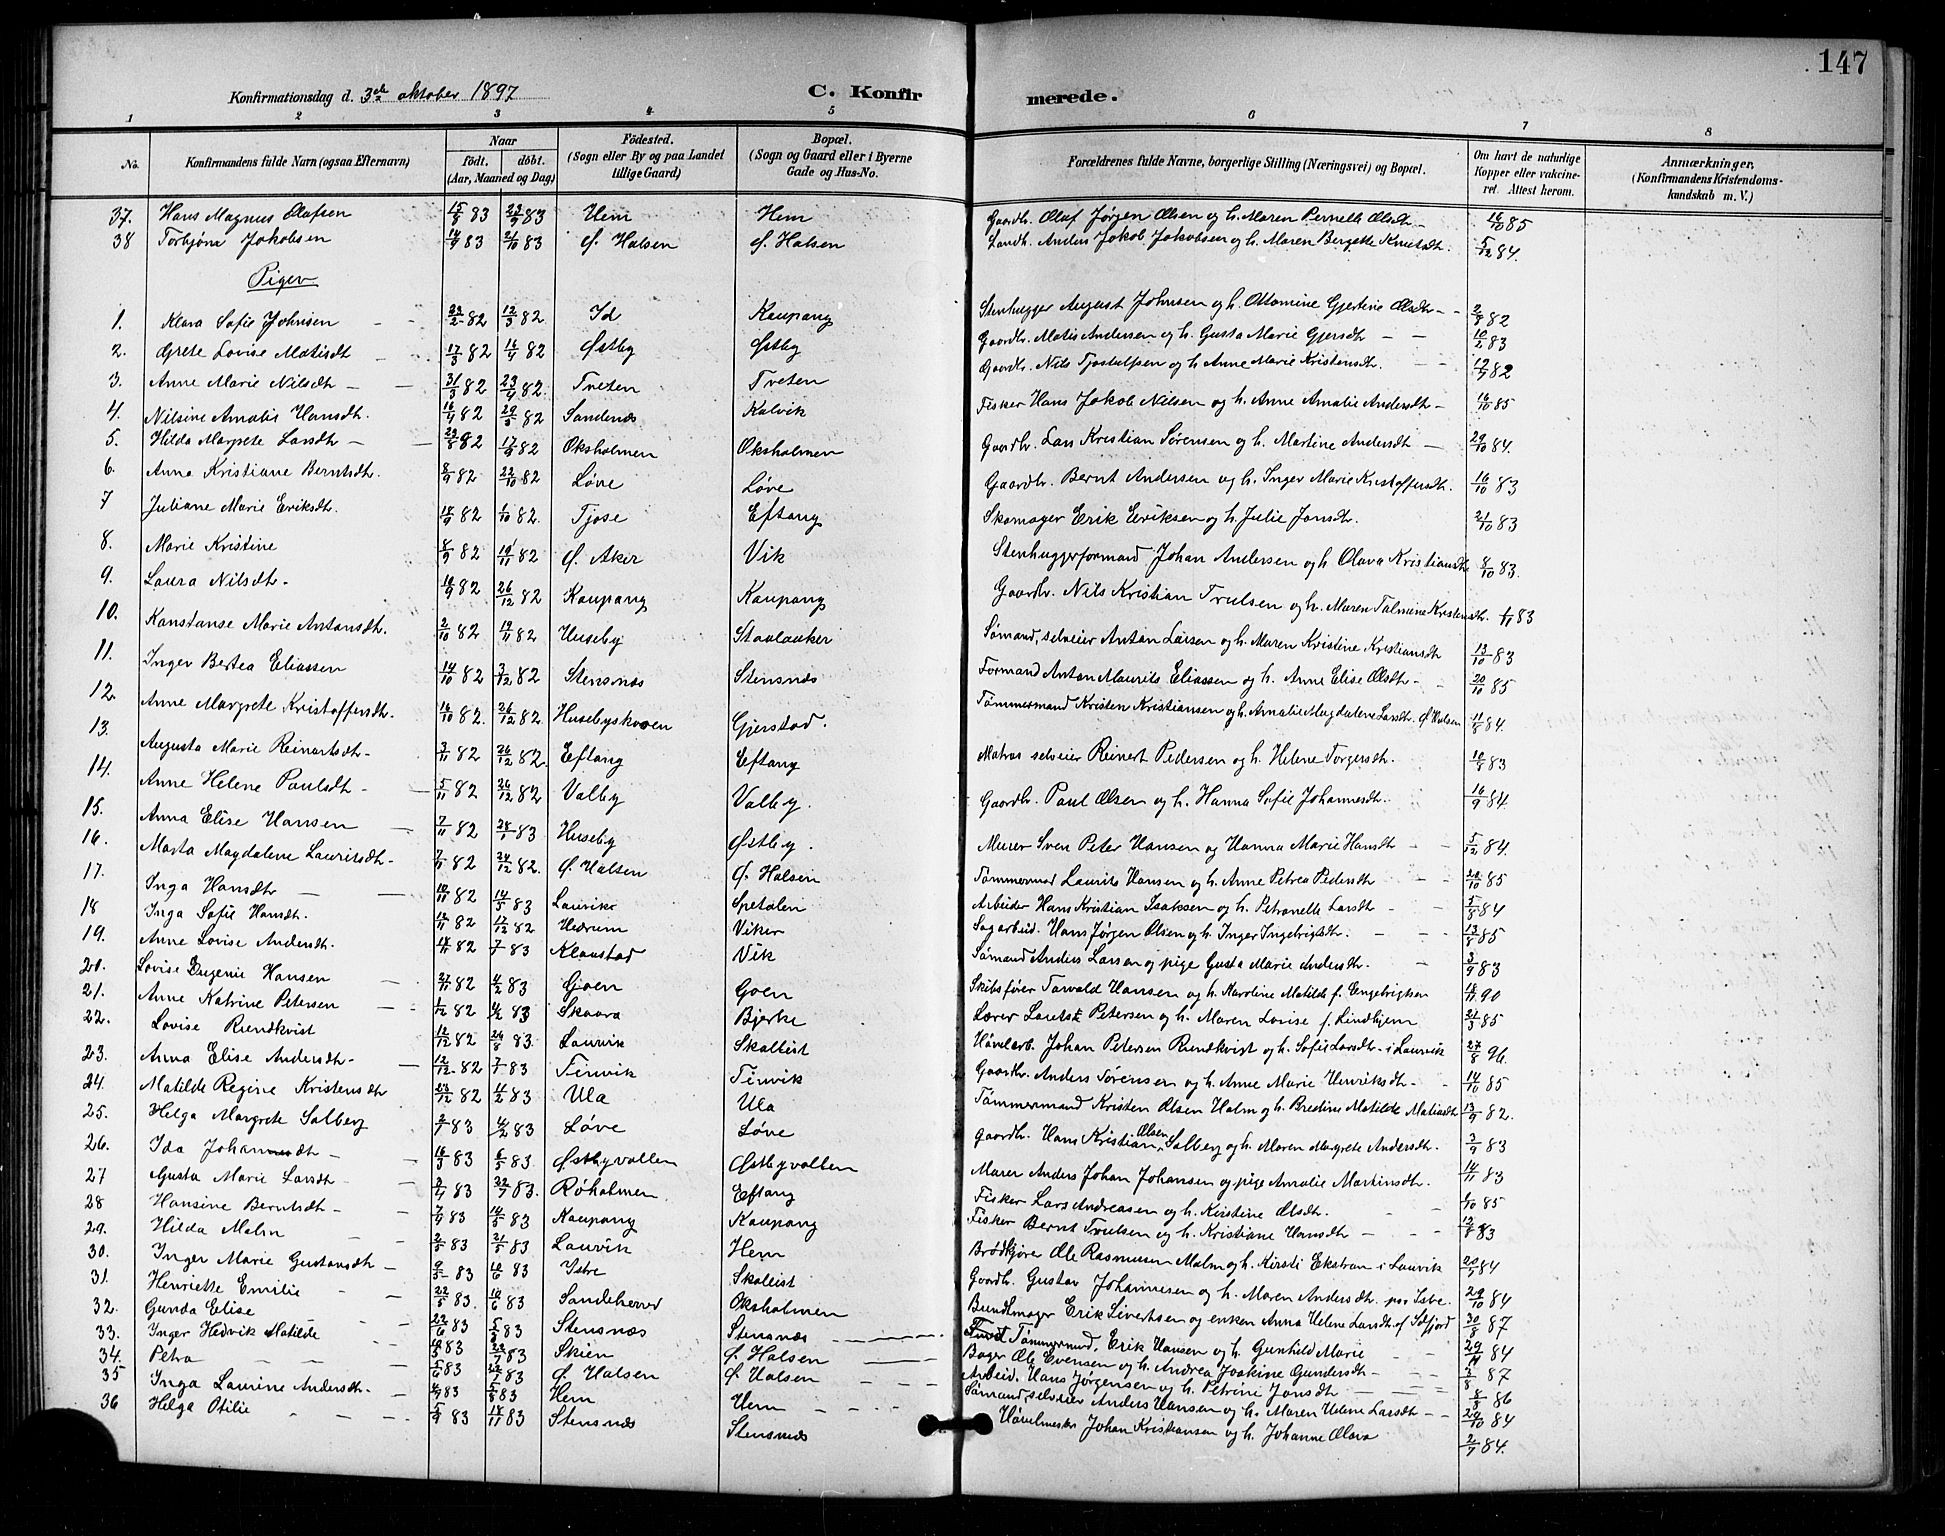 147
Konfirmationsdag d. 3die oktober 1897
C. Konfirmerede.
1 2 3 4 5 6 7 8
No. Konfirmandens fulde Navn (ogsaa Efternavn) Naar födt. döbt. (Aar, Maaned og Dag) Födested. (Sogn eller By og paa Landet tillige Gaard) Bopæl. (Sogn og Gaard eller i Byerne Gade og Hus-No. Forældrenes fulde Navne, borgerlige Stilling (Næringsvei) og Bopæl. Om havt de naturlige Kopper eller vakcineret. Attest herom. Anmærkninger. (Konfirmandens Kristendomskundskab m. V.)
37. Hans Magnus Olafsen 15/8 83 23/9 83 Hem Hem Gaardb. Olaf Jørgen Olsen og h. Maren Pernelle Olsdt. 16/10 85
38 Torbjørn Jakobsen 14/9 83 21/10 83 Ø. Halsen Ø. Halsen Landh. Anders Jakob Jakobsen og h. Maren Bergette Knutsdt. 5/12 84.
Piger
1. Klara Sofie Johnsen 22/2 82 12/3 82 Id Kaupang Stenhugger August Johnsen og h. Ottomine Gjertine Olsdt. 2/8 82
2. Grete Lovise Matisdt 17/3 82 16/4 82 Østby Østby Gaardb. Matis Andersen og h. Gusta Marie Gjersdt 83
3. Anne Marie Nilsdt 31/3 82 23/4 82. Tveten Tveten Gaardb. Nils Tjostulfsen og h. Anne Marie Kristensdt. 12/9 82
4. Nilsine Amalie Hansdt. 16/4 82 29/5 82 Sandenæs Kalvik Fisker Hans Jakob Nilsen og h. Anne Amalie Andersdt 16/10 85
5. Hilda Margrete Larsdt 23/8 82 17/9 82 Oksholmen Oksholmen Gaardb. Lars Kristian Sørensen og h. Martine Andersdt 29/10 84.
6. Anna Kristiane Berntsdt. 8/9 82 22/10 82 Løve Løve Gaardb. Bernt Andersen og h. Inger Marie Kristoffersdt. 16/10 83
7 Juliane Marie Eriksdt. 18/9 82 1/10 82. Tjose Eftang Skomager Erik Eriksen og h. Julie Jonsdt. 21/10 83
8. Marie Kristine 8/9 82 19/11 82 Ø. Aker Vik Stenhuggerformand Johan Andersen og h. Olava Kristiansdt 8/10 83.
9. Laura Nilsdt. 18/9 82 26/12 82 Kaupang Kaupang Gaardb. Nils Kristian Trulsen og h. Maren Talmine Kristensdt. 1/11 83
10. Konstanse Marie Antonsdt. 2/10 82 19/11 82 Huseby Staalaaker Sømand, selveier Anton Larsen og h. Maren Kristine Kristiansdt 13/10 83
11. Inger Bertea Eliassen 14/10 82 3/12 82 Stensnæs Stensnæs Formand Anton Maurits Eliassen og h. Anne Elise Olsdt. 20/10 85
12. Anne Margrete Kristoffersdt. 16/10 82. 26/12 82 Husebyskoven Gjerstad. Tømmermand Kristen Kristiansen og h. Amalie Magdalene Larsdt. Ø Halsen 11/8 84.
13. Augusta Marie Reinertsdt 3/11 82 26/12 82. Eftang Eftang Matros selveier Reinert Pedersen og h. Helene Torgersdt. 83
14. Anne Helene Paulsdt 5/11 82 26/12 82 Valby Valby. Gaardb. Paul Olsen og h. Hanna Sofie Johannesdt. 16/9 84
15. Anna Elise Hansen 7/11 82 28/1 83 Huseby Østby. Murer Sven Peter Hansen og Hanna Marie Hansdt 5/12 84.
16. Marta Magdalene Lauritsdt. 7/11 82 24/12 82. Ø. Halsen Ø. Halsen Tømmermand Laurits Hansen og h. Anne Petrea Pedersdt 20/10 85
17. Inga Hansdt 10/11 82 14/5 83 Laurvik Spetalen Arbeider Hans Kristian Isaksen og h. Petronelle Larsdt 5/8 84
18 Inga Sofie Hansdt. 12/11 82 17/12 82 Hedrum Viker Sagarbeid. Hans Jørgen Olsen og h. Inger Ingebrigtsdt. 13/8 85
19. Anne Lovise Andersdt. 14/11 82 7/1 83 Klaastad Vik Sømand Anders Larsen og pige Gusta Marie Andersdt. 3/9 83
20. Lovise Eugenie Hansen 27/11 82 11/2 83 Goen Goen Skibsfører Torvald Hansen og h. Karoline Matilde f. Engebrigtsen 18/11 90
21. Anne Katrine Petersen 1/12 82 4/2 83 Skaara Bjerke Lærer Lauritz Petersen og h. Maren Lovise f. Lindhjem 21/3 85
22. Lovise Rundkvist 12/12 82 26/8 83. Laurvik Skalleist Høvelarb. Johan Petersen Rundkvist og h. Sofie Larsdt. i Laurvik 27/8 96.
23. Anna Elise Andersdt. 12/12 82 7/1 83 Tinvik Tinvik Gaardb. Anders Sørensen og h. Anne Marie Henriksdt. 14/10 85
24. Matilde Regine Kristensdt 23/12 82 11/2 83 Ula Ula Tømmermand Kristen Olsen Holm og h. Bredine Matilde Matiasdt 13/9 82.
25. Helga Margrete Solberg 2/1 83 4/2 83 Løve Løve Gaardb. Hans Kristian Olsen Solberg og h. Maren Margrete Andersdt. 3/9 83
26. Ida Johannesdt. 16/3 83 6/5 83. Østbyvollen Østbyvollen Murer Anders Johan Johansen og pige Amalie Martinsdt. 14/11 83
27 Gusta Marie Larsdt. 2/4 83 22/7 83. Røholmen Eftang Fisker Lars Andreasen og h. Kirstine Olsdt. 85
28 Hansine Berntsdt. 7/4 83 14/5 83 Kaupang Kaupang Fisker Bernt Trulsen og h. Kristiane Hansdt 12/8 83
29. Hilda Malm 2/5 83 21/5 83 Laurvik Hem Brødkjører Ole Rasmusen Malm og h. Kirsti Ekstran i Laurvik 84
30. Inger Marie Gustavsdt. 9/5 83 10/6 83 Istre Skalleist Gaardb. Gustav Johannesen og h. Maren Andersdt. paa Istre. 29/10 84
31. Henriette Emilie 22/5 83. 10/6 83 Sandeherred Oksholmen Bundtmager Erik Sivertsen og enken Anna Helene Larsdt. af Idfjord 30/8 87
32. Gunda Elise 22/6 83 5/8 83 Stensnæs Stensnæs Tømmermand, Erik Hansen og h. Gunhild Marie 29/11 84
33. Inger Hedvik Matilde 83 22/7 83 Skien Ø. Halsen Bager Ole Evensen og h. Andrea Joakine Gundersdt. 3/8 87
34. Petra 5/6 83 83 Ø. Halsen Ø. Halsen Arbeid. Hans Jørgensen og h. Petrine Jonsdt 8/8 86
35 Inga Laurine Andersdt. 83 5/8 83 Hem Hem Sømand, selveier Anders Hansen og h. Maren Helene Larsdt. 29/10 84
36 Helga Otilie 5/9 83 18/11 83 Stensnæs Stensnæs Høvelmester Johan Kristiansen og h. Johanne Olava 84.